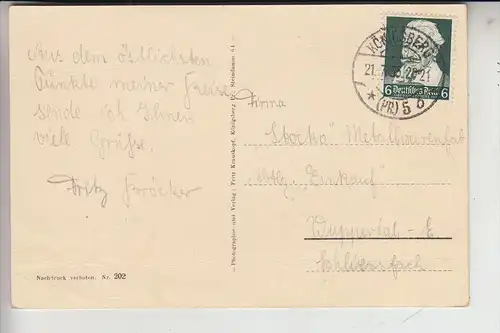 Aus dem östlichsten
Punkte meiner Reise
sende ich Ihnen
viele Grüße.
Fritz
Nachdruck verboten. Nr. 202
Photographie und Verlag: Fritz Krauskopf, Königsberg Pr., Steindamm 61
KÖNIGSBERG
21.7.35.20-21
(PR) 5
Deutsches Reich
6 6
Firma
"Stocko" Metallwarenfab
Abtlg. "Einkauf"
Wuppertal-E.